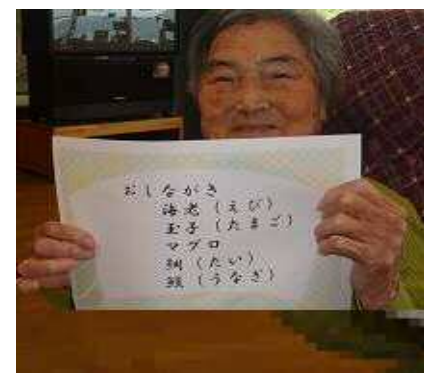 おしながき
海老(えび)
玉子(たまご)
マグロ
鯛(たい)
鰻(うなぎ)